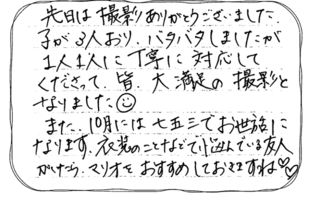 先日は撮影ありがとうございました。
子が3人おり、バタバタしましたが
1人1人に丁寧に対応して
くださって、皆、大満足の撮影と
なりました
また、10月には七五三でお世話に
なります。衣装のことなどで悩んでいる友人
がいたら、マリオをおすすめしておきますね♡♡